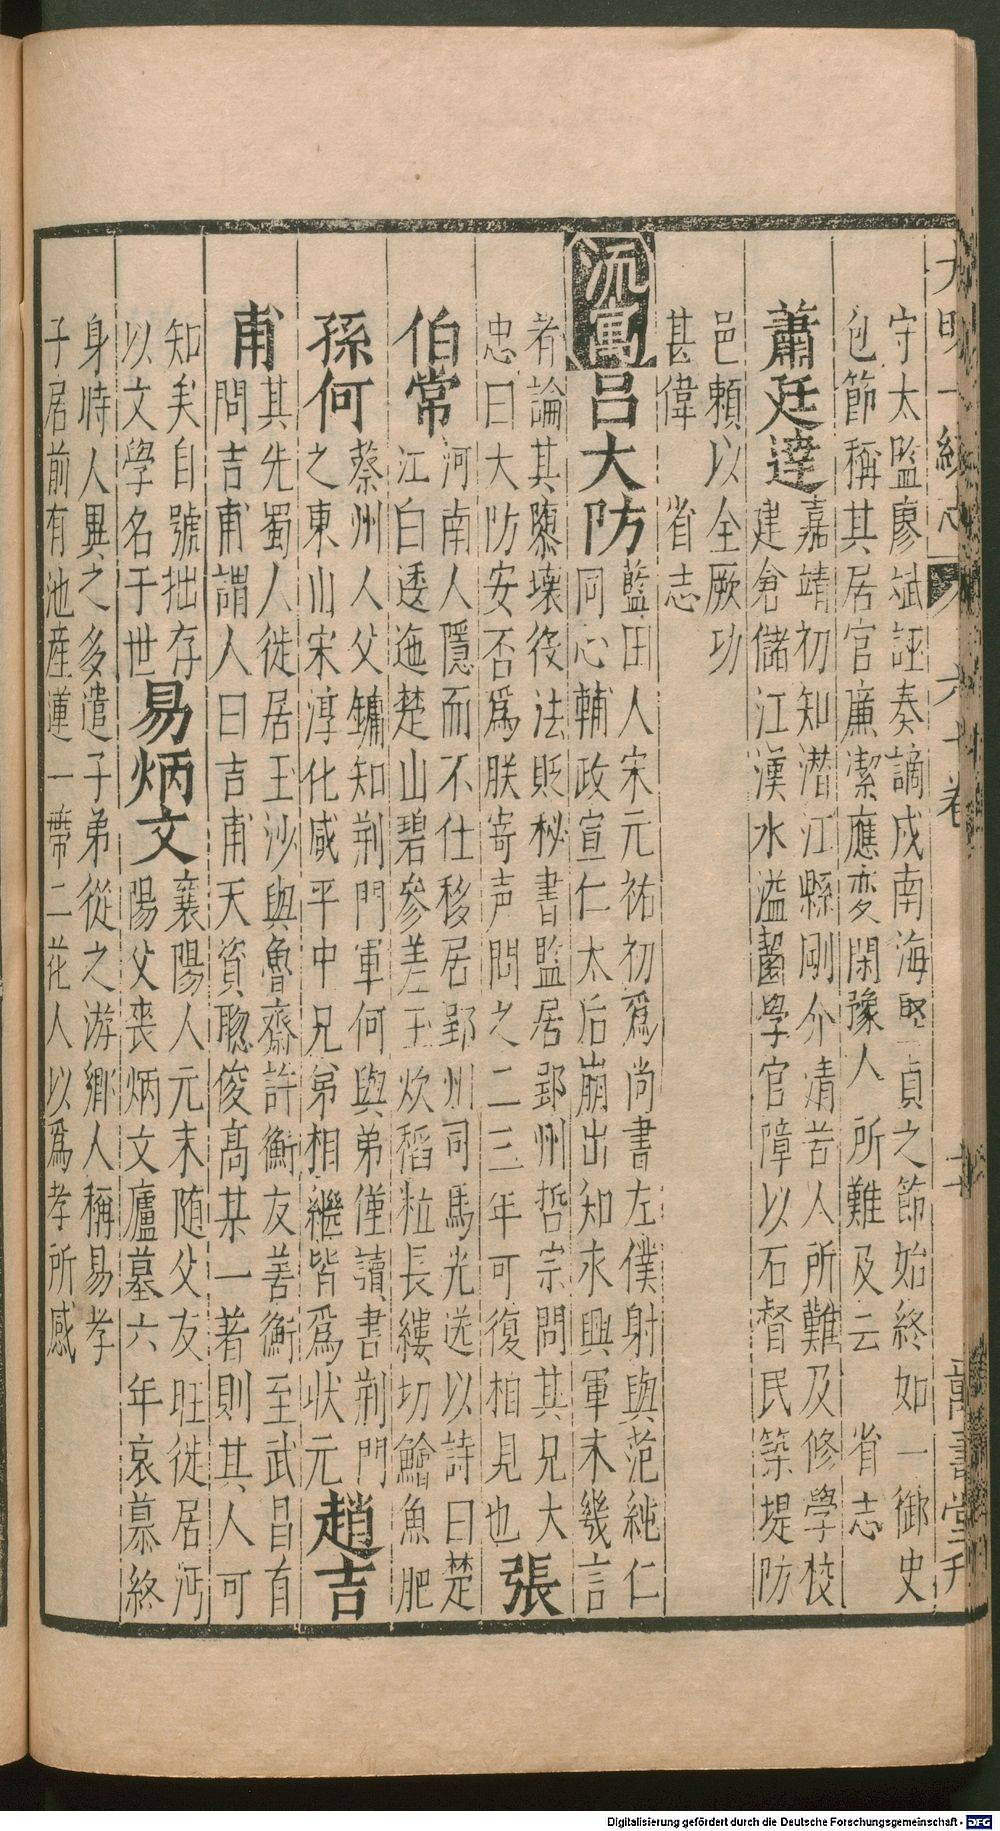 大明一統志 六十卷 萬壽堂刊
守太監廖斌誣奏謫戍南海堅貞之節始終如一御史
包節稱其居官廉潔應变閑豫人所難及云 省志
蕭廷達 嘉靖初知潜江縣剛介清苦人所難及修學校
建倉儲江漢水溢齧學官障以石督民築堤防
邑賴以全厥功
甚偉 省志
流寓 呂大防 藍田人宋元祐初爲尚書左僕射與范純仁
同心輔政宣仁太后崩出知永興軍未幾言
者論其隳壞役法貶秘書監居郢州哲宗問其兄大
忠曰大防安否爲朕寄声問之二三年可復相見也 張
伯常 河南人隱而不仕移居郢州司馬光送以詩曰楚
江白透迤楚山碧參差玉炊稻粒長縷切鱠魚肥
孫何 蔡州人父鏞知荆門軍何與弟僅讀書荆門
之東山宋淳化咸平中兄弟相繼皆爲狀元 趙吉
甫 其先蜀人徙居玉沙與魯齋許衡友善衡至武昌有
問吉甫謂人曰吉甫天資聦俊高某一著則其人可
知矣自號拙存
以文學名于世 易炳文 襄陽人元末随父友旺徙居沔
陽父丧炳文廬墓六年哀慕終
身時人異之多遣子弟從之游鄉人稱易孝
子居前有池産蓮一帶二花人以爲孝所感
Digitalisierung gefördert durch die Deutsche Forschungsgemeinschaft - DFG